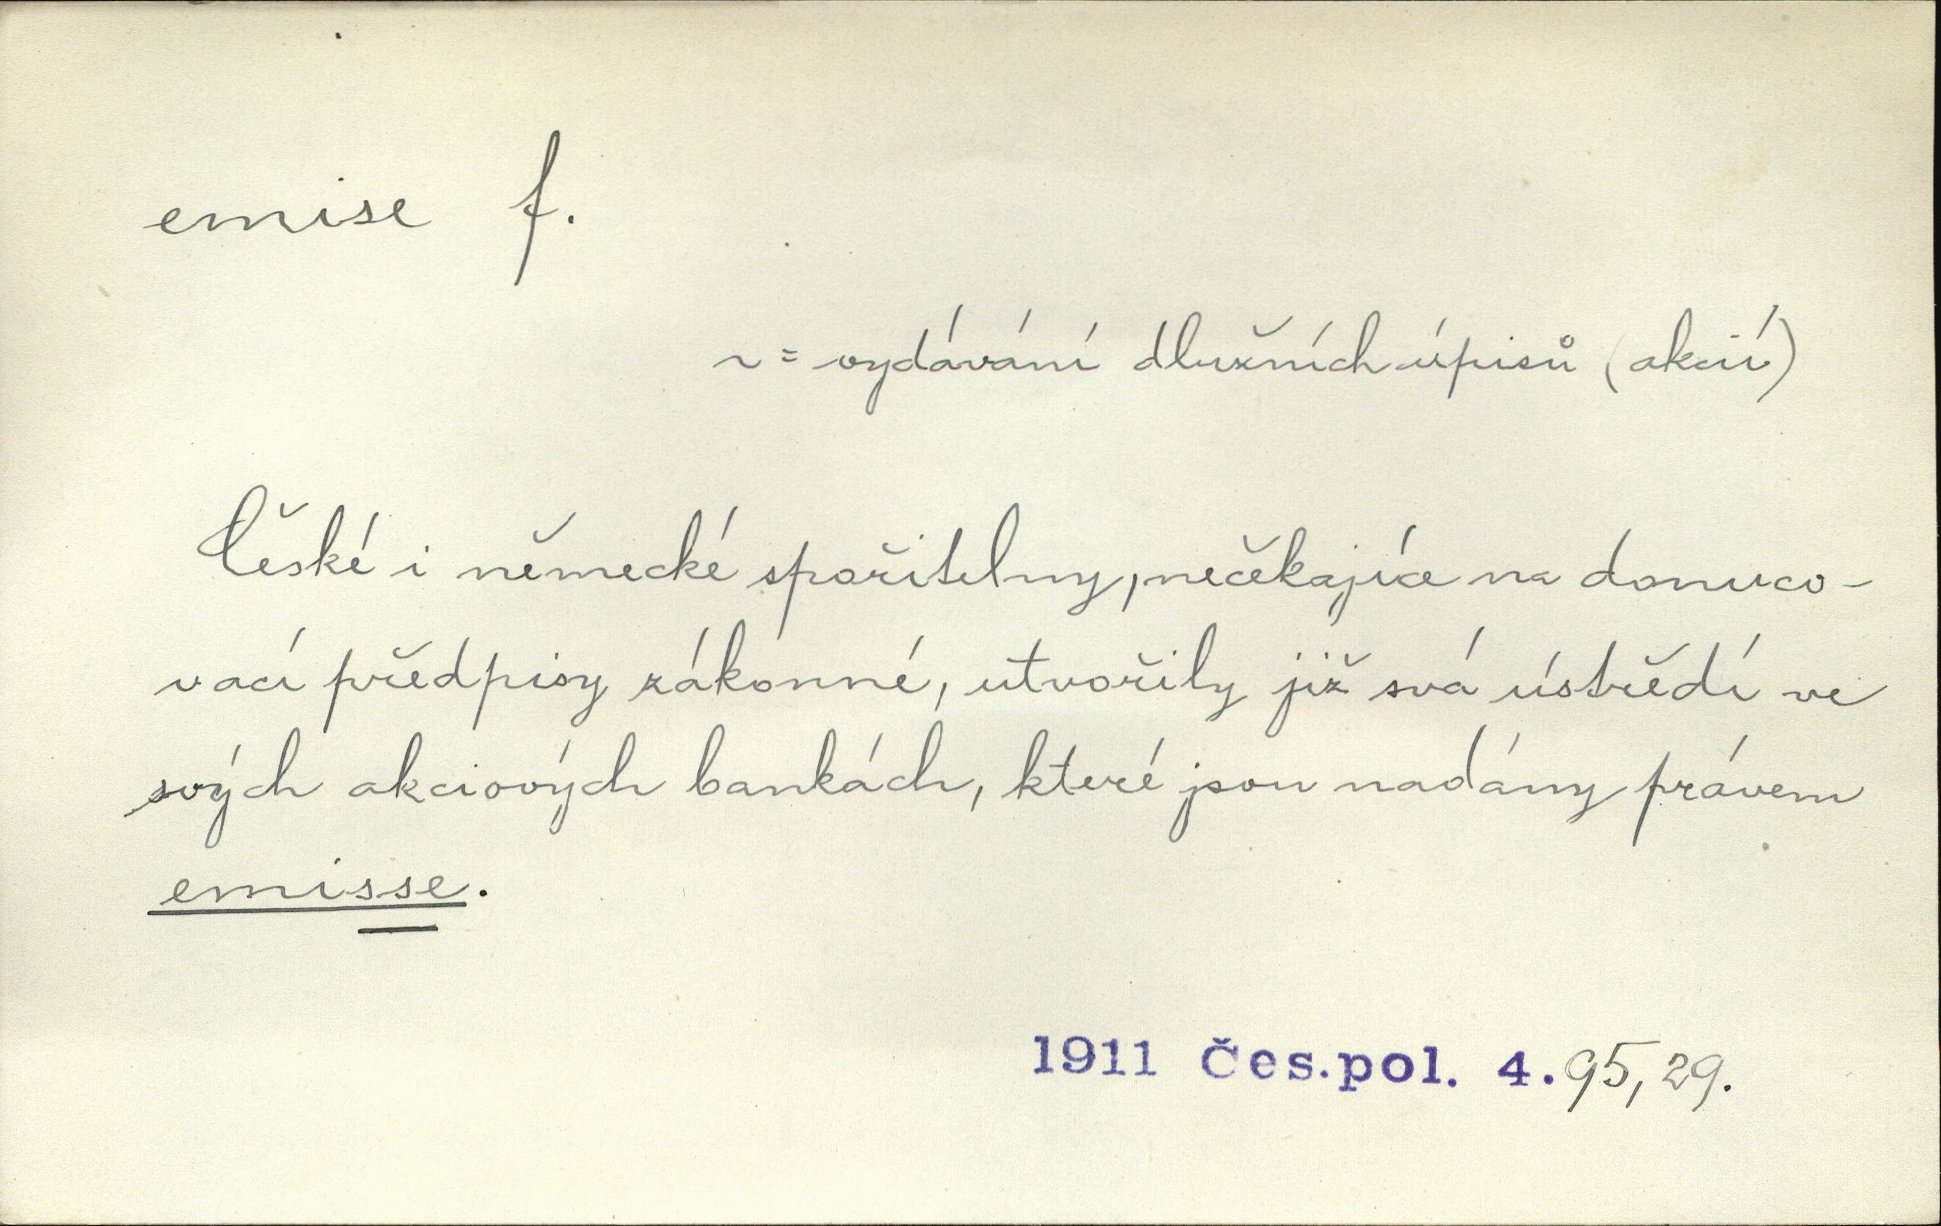 emise f.
~ = vydávání dlužních úpisů (akcií)
České i německé spořitelny, nečekajíce na donuco-
vací předpisy zákonné, utvořily již svá ústředí ve
svých akciových bankách, které jsou nadány právem
emisse.
1911 Čes.pol. 4. 95, 29.